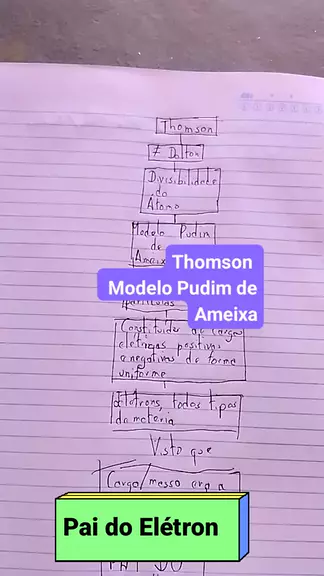 Thomson
≠ Dalton
Divisibilidade
do
Átomo
Modelo Pudim
de
Ameixa
Thomson
Modelo Pudim de
Ameixa
partículas
Constituídas de cargas
elétricas positivas
e negativas de forma
uniforme
Elétrons, todos tipos
da matéria
Visto que
Carga/massa era a
Pai do Elétron